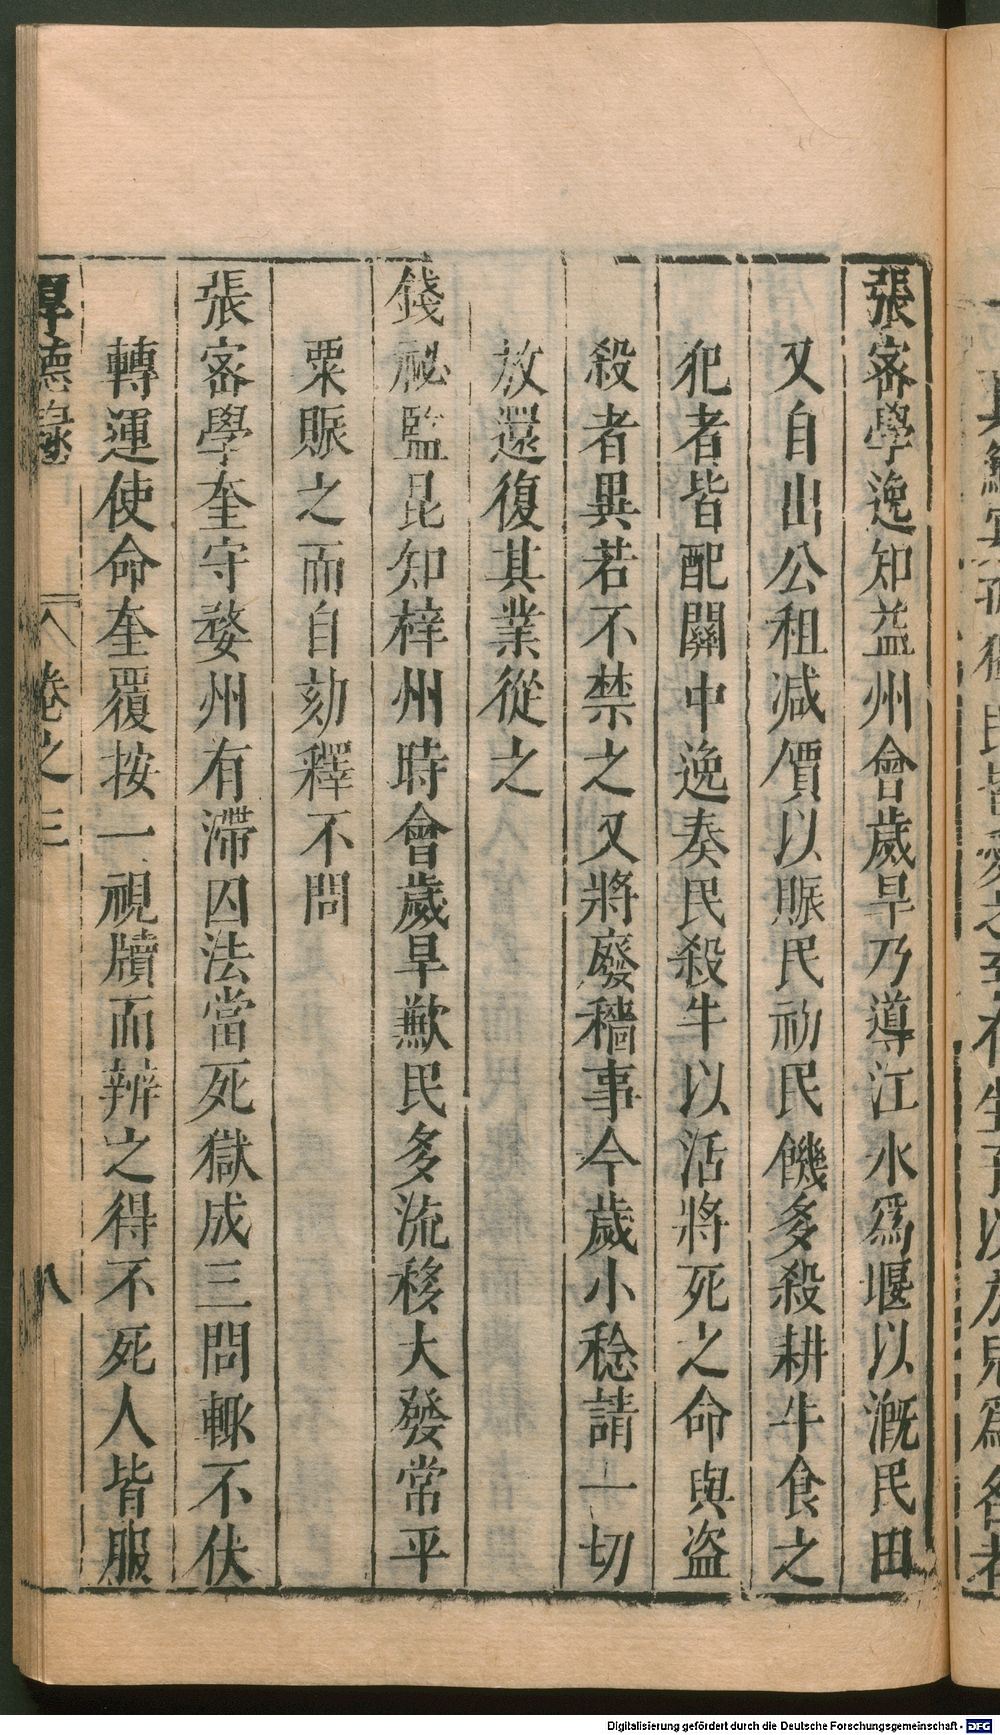 張密學逸知益州會歲旱乃導江水爲堰以漑民田
又自出公租减價以賑民初民饑多殺耕牛食之
犯者皆配關中逸奏民殺牛以活將死之命與盗
殺者異若不禁之又將廢穡事今歲小稔請一切
放還復其業從之
錢祕監昆知梓州時會歲旱歉民多流移大發常平
粟賑之而自劾釋不問
張密學奎守婺州有滯囚法當死獄成三問輒不伏
轉運使命奎覆按一視牘而辨之得不死人皆服
厚德錄 卷之三 八
Digitalisierung gefördert durch die Deutsche Forschungsgemeinschaft - DFG